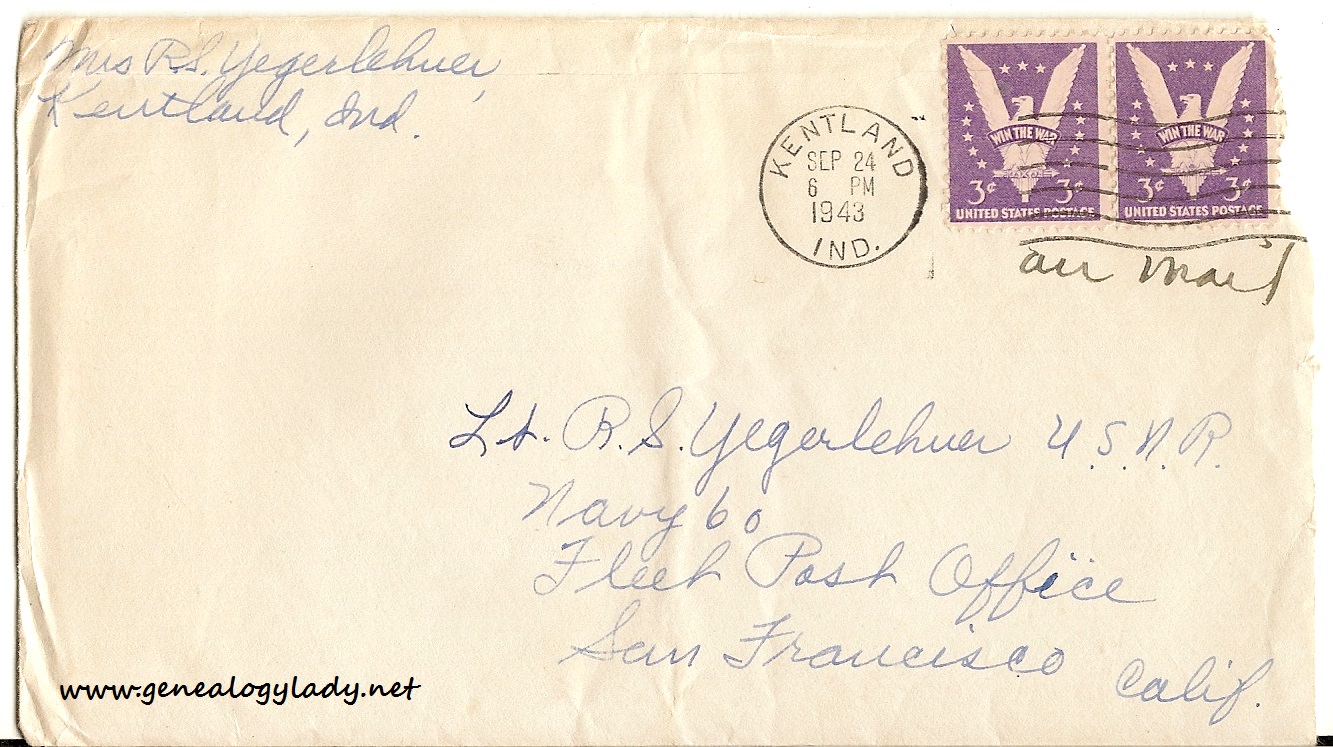 Mrs R.S. Yegerlehner,
Kentland, Ind.
KENTLAND
SEP 24
6 PM
1943
IND.
WIN THE WAR
3¢ 3¢
UNITED STATES POSTAGE
WIN THE WAR
3¢ 3¢
UNITED STATES POSTAGE
air mail
Lt. R.S. Yegerlehner U.S.N.R.
Navy 60
Fleet Post Office
San Francisco
Calif.
www.genealogylady.net